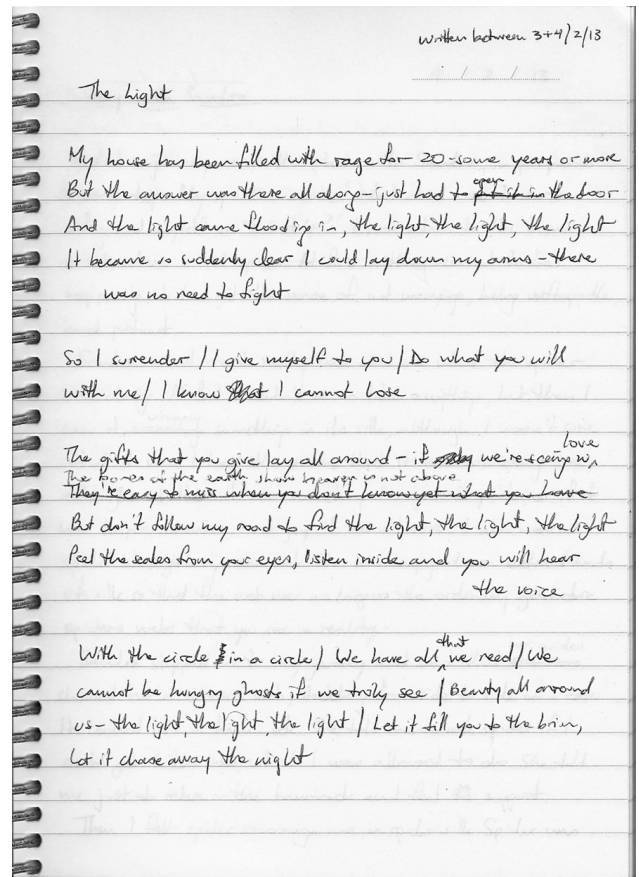 Written between 3+4/2/13
The Light
My house has been filled with rage for 20-some years or more
But the answer was there all along - just had to open the door
And the light came flooding in, the light, the light, the light
It became so suddenly clear I could lay down my arms - there
was no need to fight
So I surrender / I give myself to you / Do what you will
with me / I know that I cannot lose
The gifts that you give lay all around - if we're seeing w/ love
The bones of the earth show heaven is not above
They're easy to miss when you don't know yet what you have
But don't follow my road to find the light, the light, the light
Peel the scales from your eyes, listen inside and you will hear
the voice
With the circle in a circle / We have all that we need / We
cannot be hungry ghosts if we truly see / Beauty all around
us - the light, the light, the light / Let it fill you to the brim,
Let it chase away the night